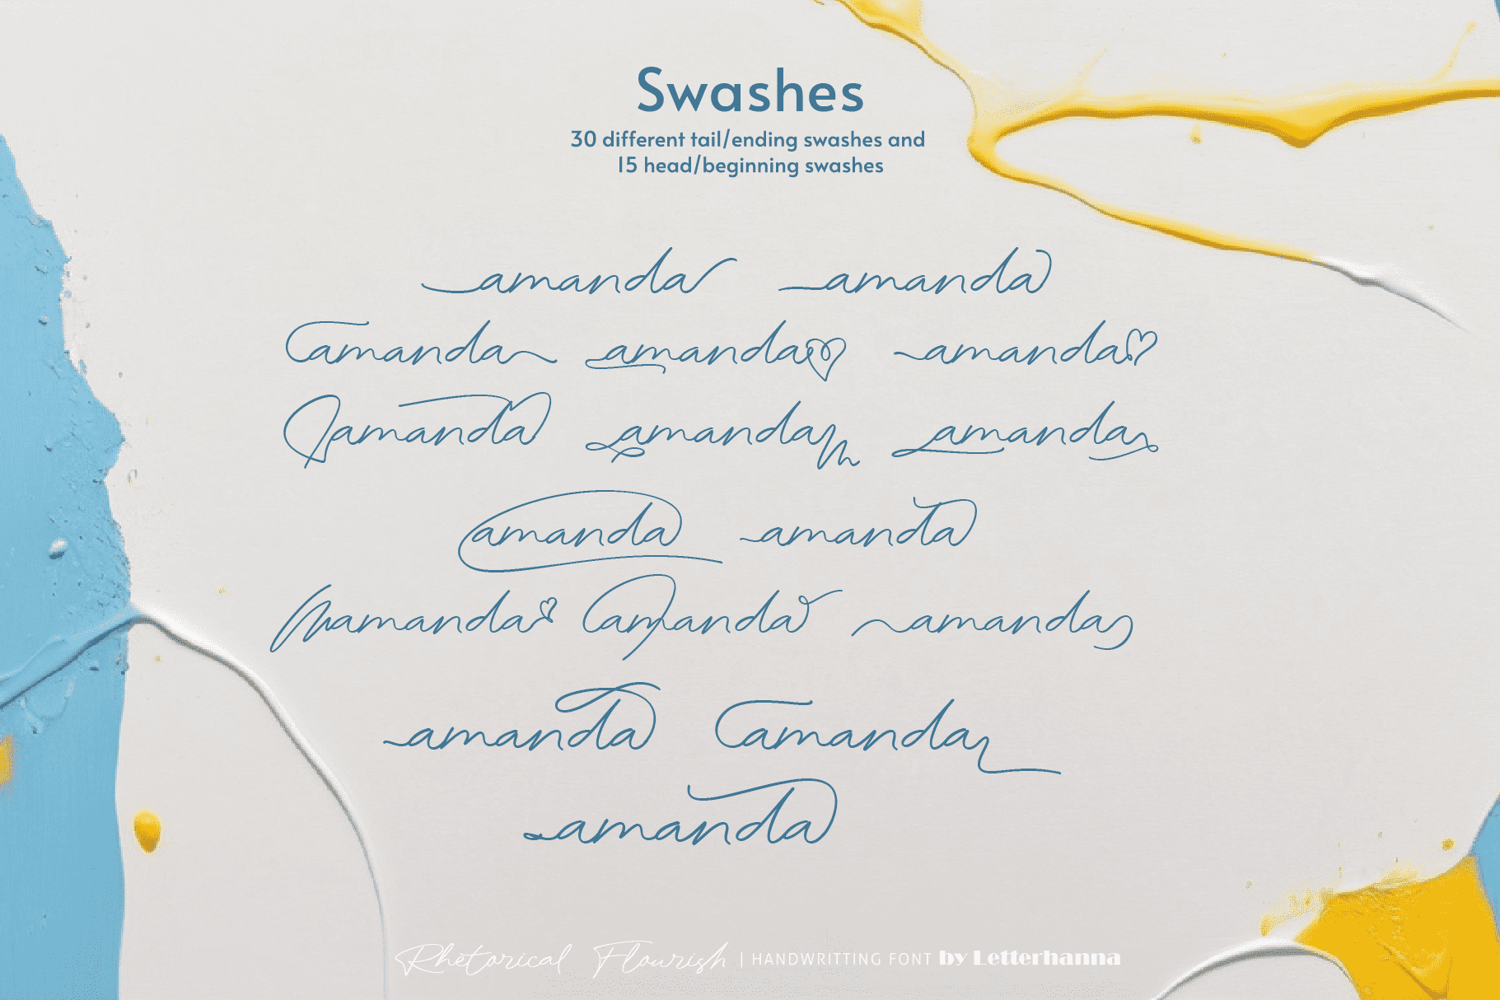 Swashes
30 different tail/ending swashes and
15 head/beginning swashes
amanda amanda
amanda amanda amanda
amanda amanda amanda
amanda amanda
amanda amanda amanda
amanda amanda
amanda
Rhetorical Flourish | HANDWRITTING FONT by Letterhanna